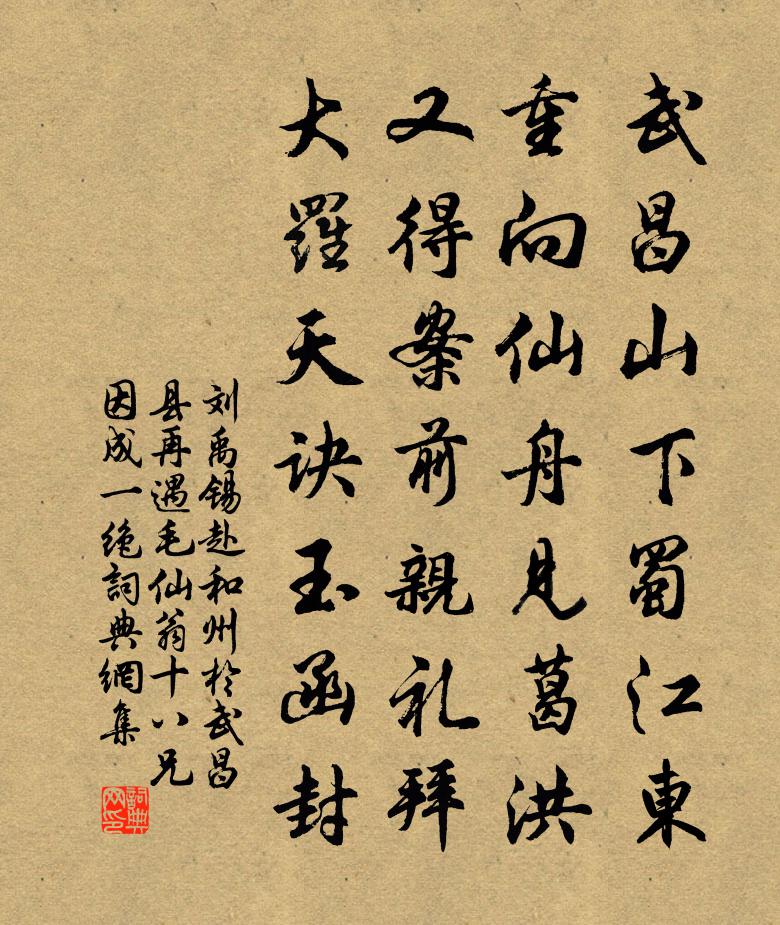 武昌山下蜀江東
重向仙舟見葛洪
又得案前親礼拜
大羅天訣玉函封
刘禹锡赴和州於武昌
县再遇毛仙翁十八兄
因成一绝詞典網集
詞典网印